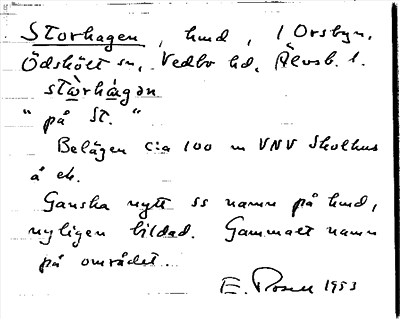 Storhagen, hmd, 1 Orsbyn,
Ödskölt sn, Vedbo hd, Älvsb. l.
stòrhágən
" på St. "
Belägen c:a 100 m VNV Skolhus
å ek.
Ganska nytt ss namn på hmd,
nyligen bildad. Gammalt namn
på området.
E. Rosen 1953